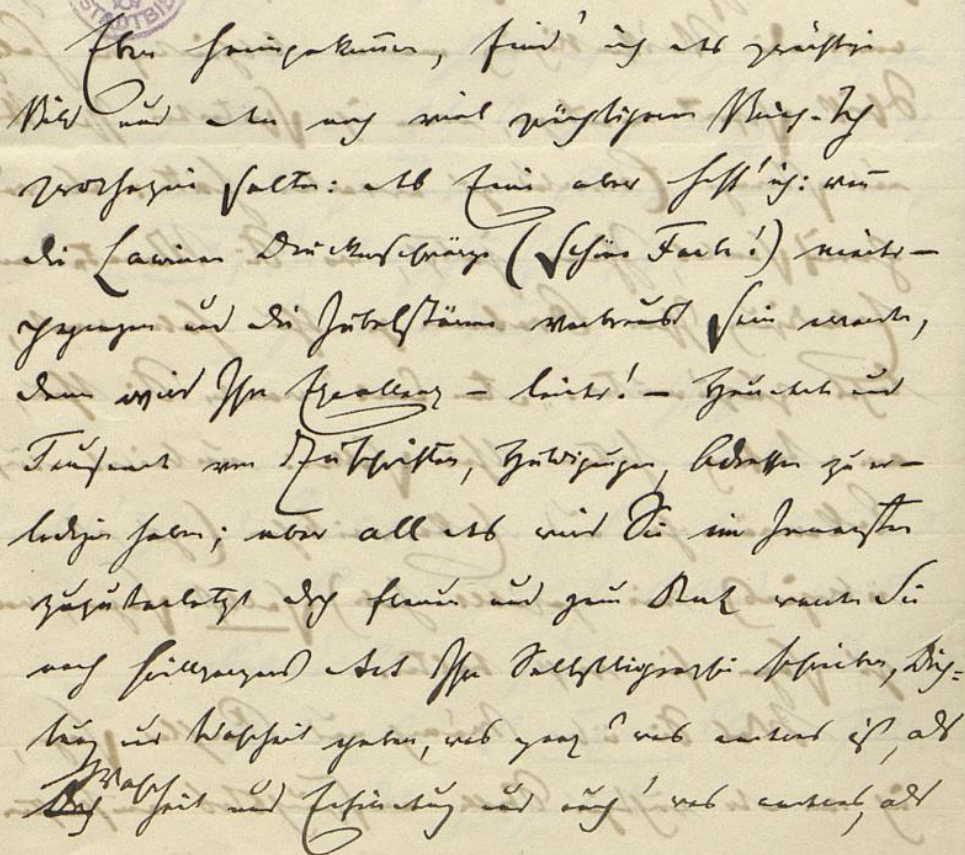 STADTBIB
Eben heimgekommen, find' ich das prächtige
Bild und den noch viel prächtigeren
sollte: das Eine aber hoff' ich: wenn
die Lawinen Druckerschwärze (Schöne Farbe!) nieder-
gegangen und die Jubelstürme verbraust sein werden,
dann wird Ihre Excellenz – leider! – Hunderte und
Tausende von Zuschriften, Huldigungen, Adressen zu er-
ledigen haben; aber all das wird Sie im Innersten
zuguterletzt doch freuen und zum Dank werden Sie
nach Grillparzers Art Ihre Selbstbiographie schreiben, Dich-
tung und Wahrheit geben, was ganz was anderes ist, als
Wahrheit und Erfindung und auch was anderes, als